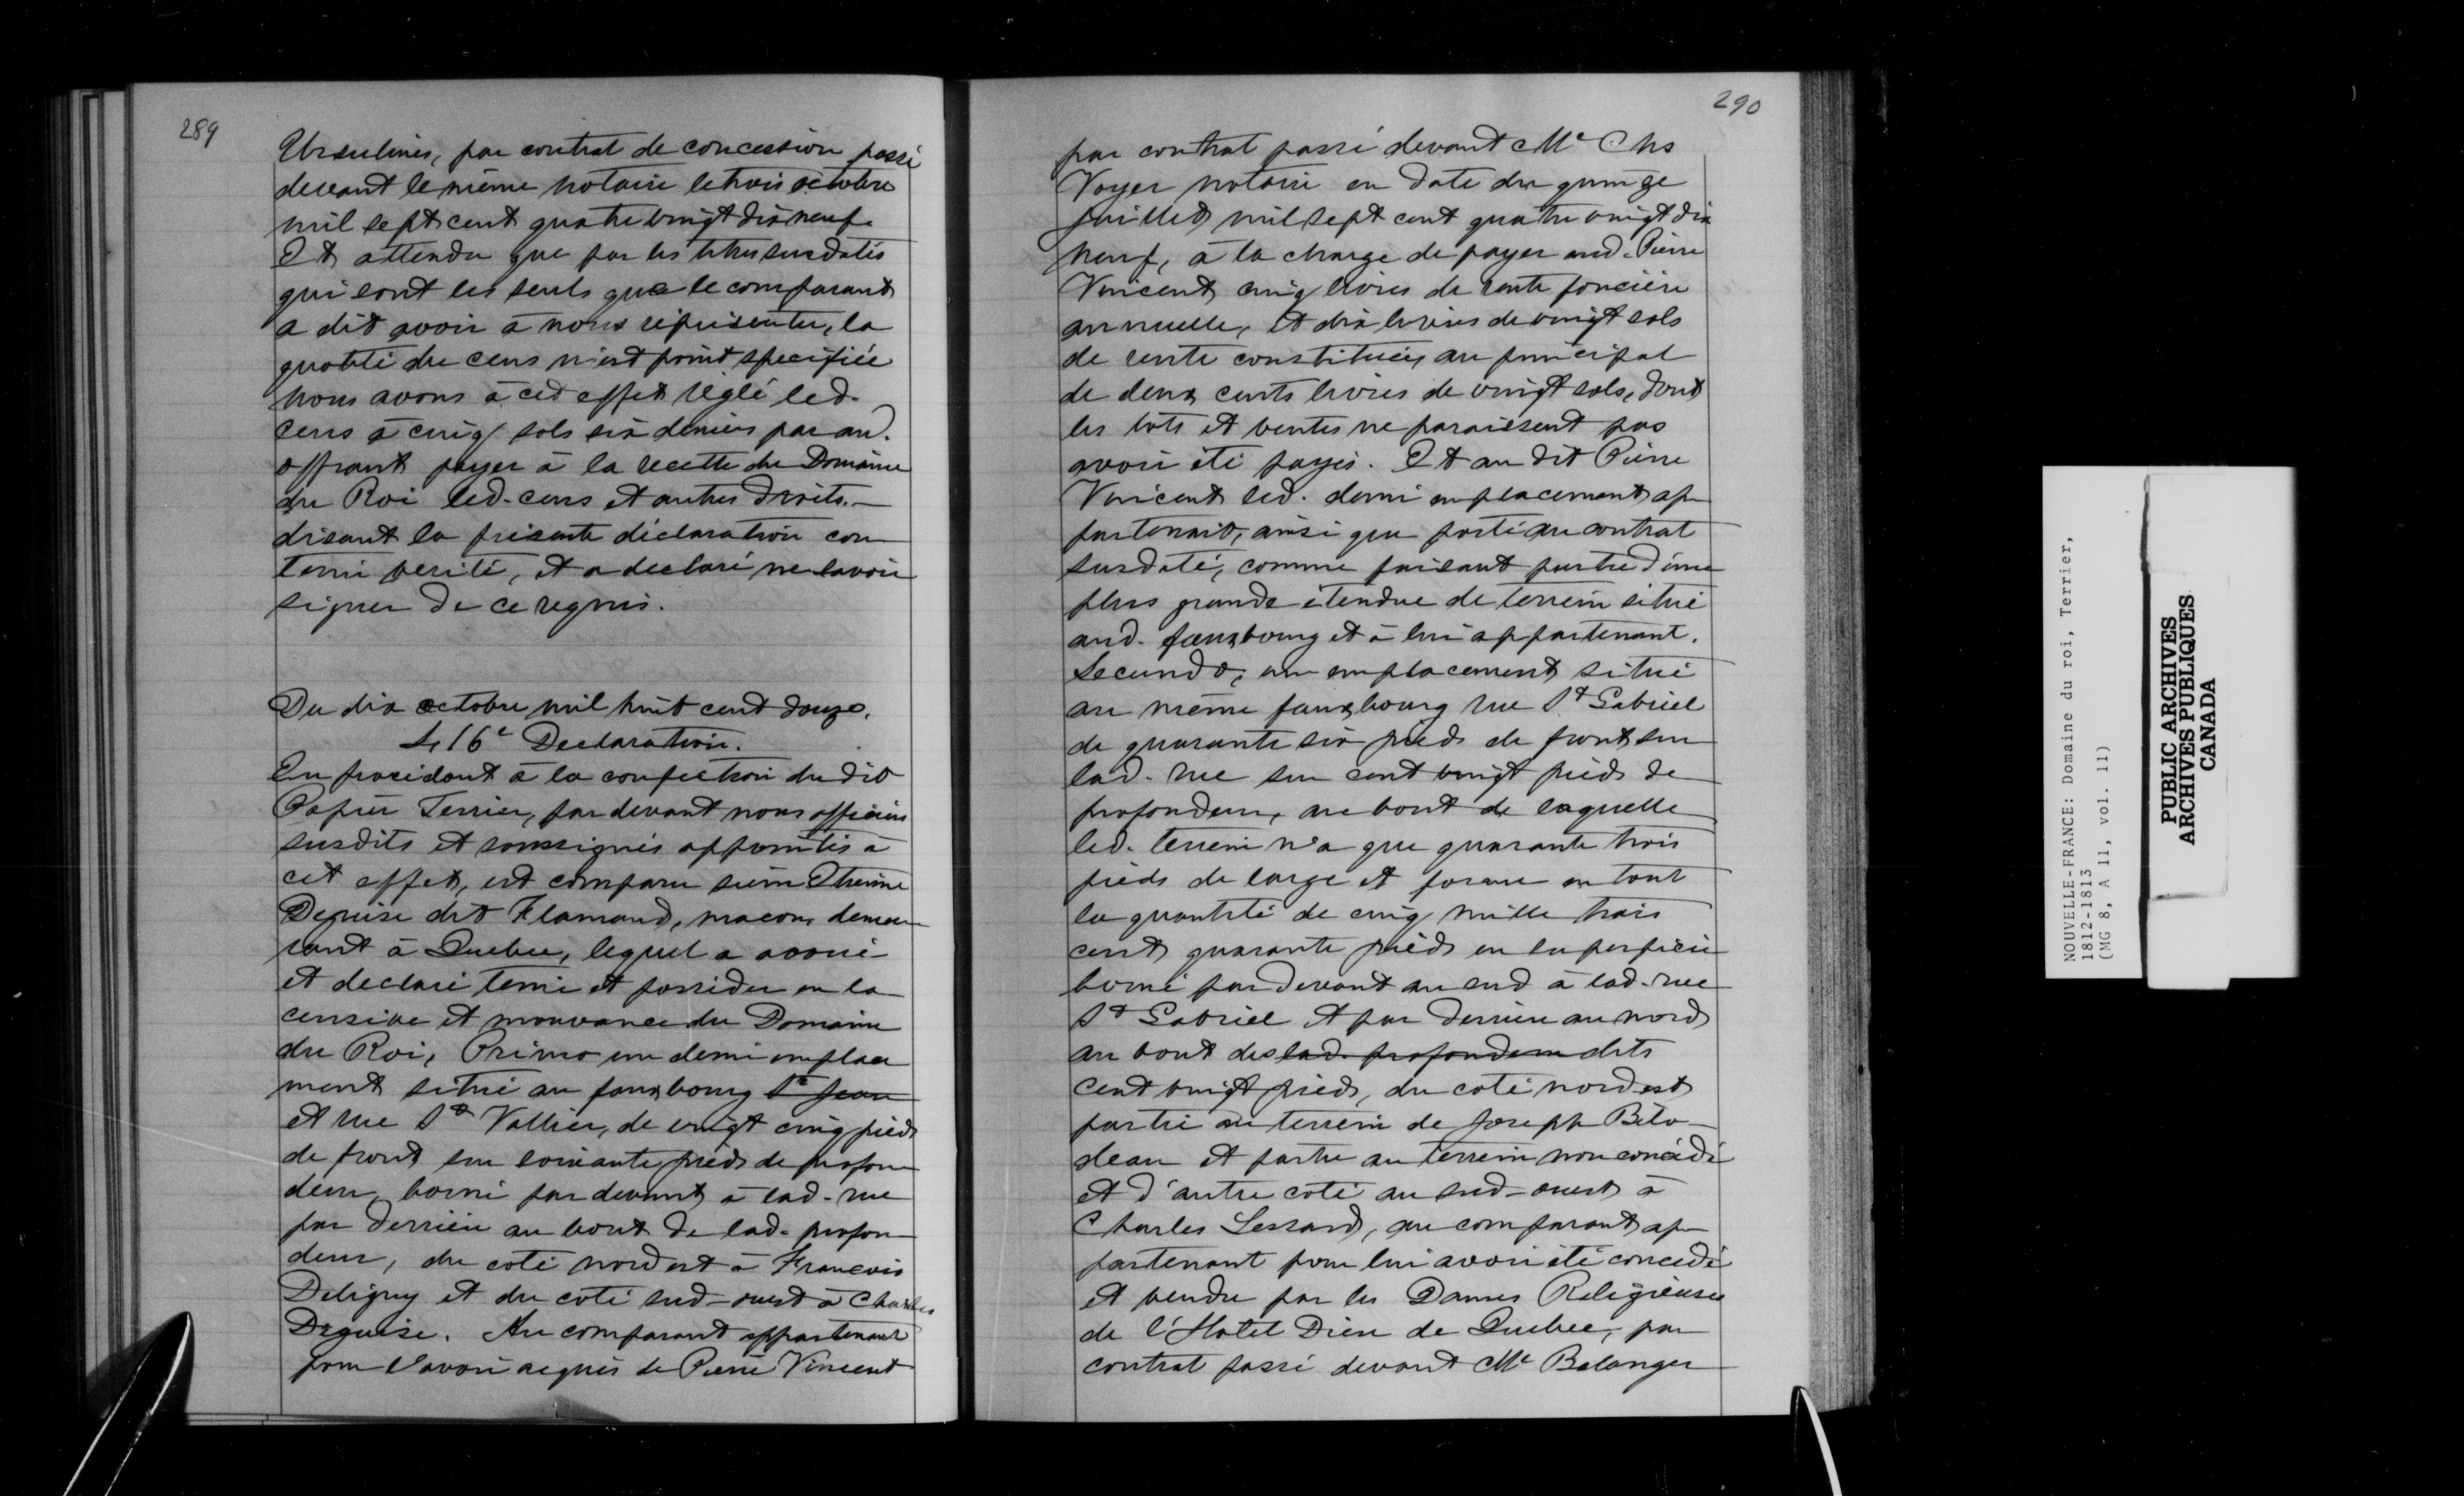 289
Ursulines, par contrat de concession passé
devant le même notaire le trois octobre
mil sept cent quatre vingt dix neuf.
Et attendu que par les titres susdatés
qui sont les seuls que le comparant
a dit avoir à nous représenter, la
quotité du cens n'est point specifiée
nous avons à cet effet réglé led.
cens à cinq sols six deniers par an.
offrant payer à la recette du Domaine
du Roi led. cens et autres droits.—
disant la présente déclaration con
tenir verité, et a declaré ne savoir
signer de ce requis.
Du dix octobre mil huit cent douze.
416e Declaration.
En procédant à la confection du dit
Papier Terrier, par devant nous officiers
susdits et soussignés appointés à
cet effet, est comparu sieur Etienne
Deguise dit Flamand, macon, demeu
rant à Quebec, lequel a avoué
et declaré tenir et posséder en la
censive et mouvance du Domaine
du Roi, Primo un demi emplace
ment situé au fauxbourg St Jean
et rue St Vallier, de vingt cinq pieds
de front sur soixante pieds de profon
deur, borné par devant à lad. rue
par derrière au bout de lad. profon
deur, du coté nord est à François
Deligny et du coté sud-ouest à Charles
Deguise. Au comparant appartenant
pour l'avoir acquis de Pierre Vincent
290
par contrat passé devant Me Chs
Voyer notaire en date du quinze
juillet mil sept cent quatre vingt dix
neuf, à la charge de payer aud. Pierre
Vincent cinq livres de rente foncière
annuelle, et dix livres de vingt sols
de rente constituée, au principal
de deux cents livres de vingt sols, dont
les lots et ventes ne paraissent pas
avoir été payés. Et au dit Pierre
Vincent led. demi emplacement ap
partenait, ainsi que porté au contrat
susdaté, comme faisant partie d'une
plus grande étendue de terrein situé
aud. fauxbourg et à lui appartenant.
Secundo, un emplacement situé
au même fauxbourg rue St Gabriel
de quarante six pieds de front sur
lad. rue sur cent vingt pieds de
profondeur, au bout de laquelle
led. terrein n'a que quarante trois
pieds de large et forme en tout
la quantité de cinq mille trois
cent quarante pieds en superficie
borné par devant au sud à lad. rue
St Gabriel et par derrière au nord
au bout des lad. profondeur dits
cent vingt pieds, du coté nord est
partie au terrein de Joseph Bilo-
deau et partie au terrein non concédé
et d'autre coté au sud-ouest à
Charles Lessard, au comparant ap
partenant pour lui avoir été concedé
et vendu par les Dames Religieuses
de l'Hotel Dieu de Quebec, par
contrat passé devant Me Belanger
NOUVELLE-FRANCE: Domaine du roi, Terrier,
1812-1813
(MG 8, A 11, vol. 11)
PUBLIC ARCHIVES
ARCHIVES PUBLIQUES
CANADA